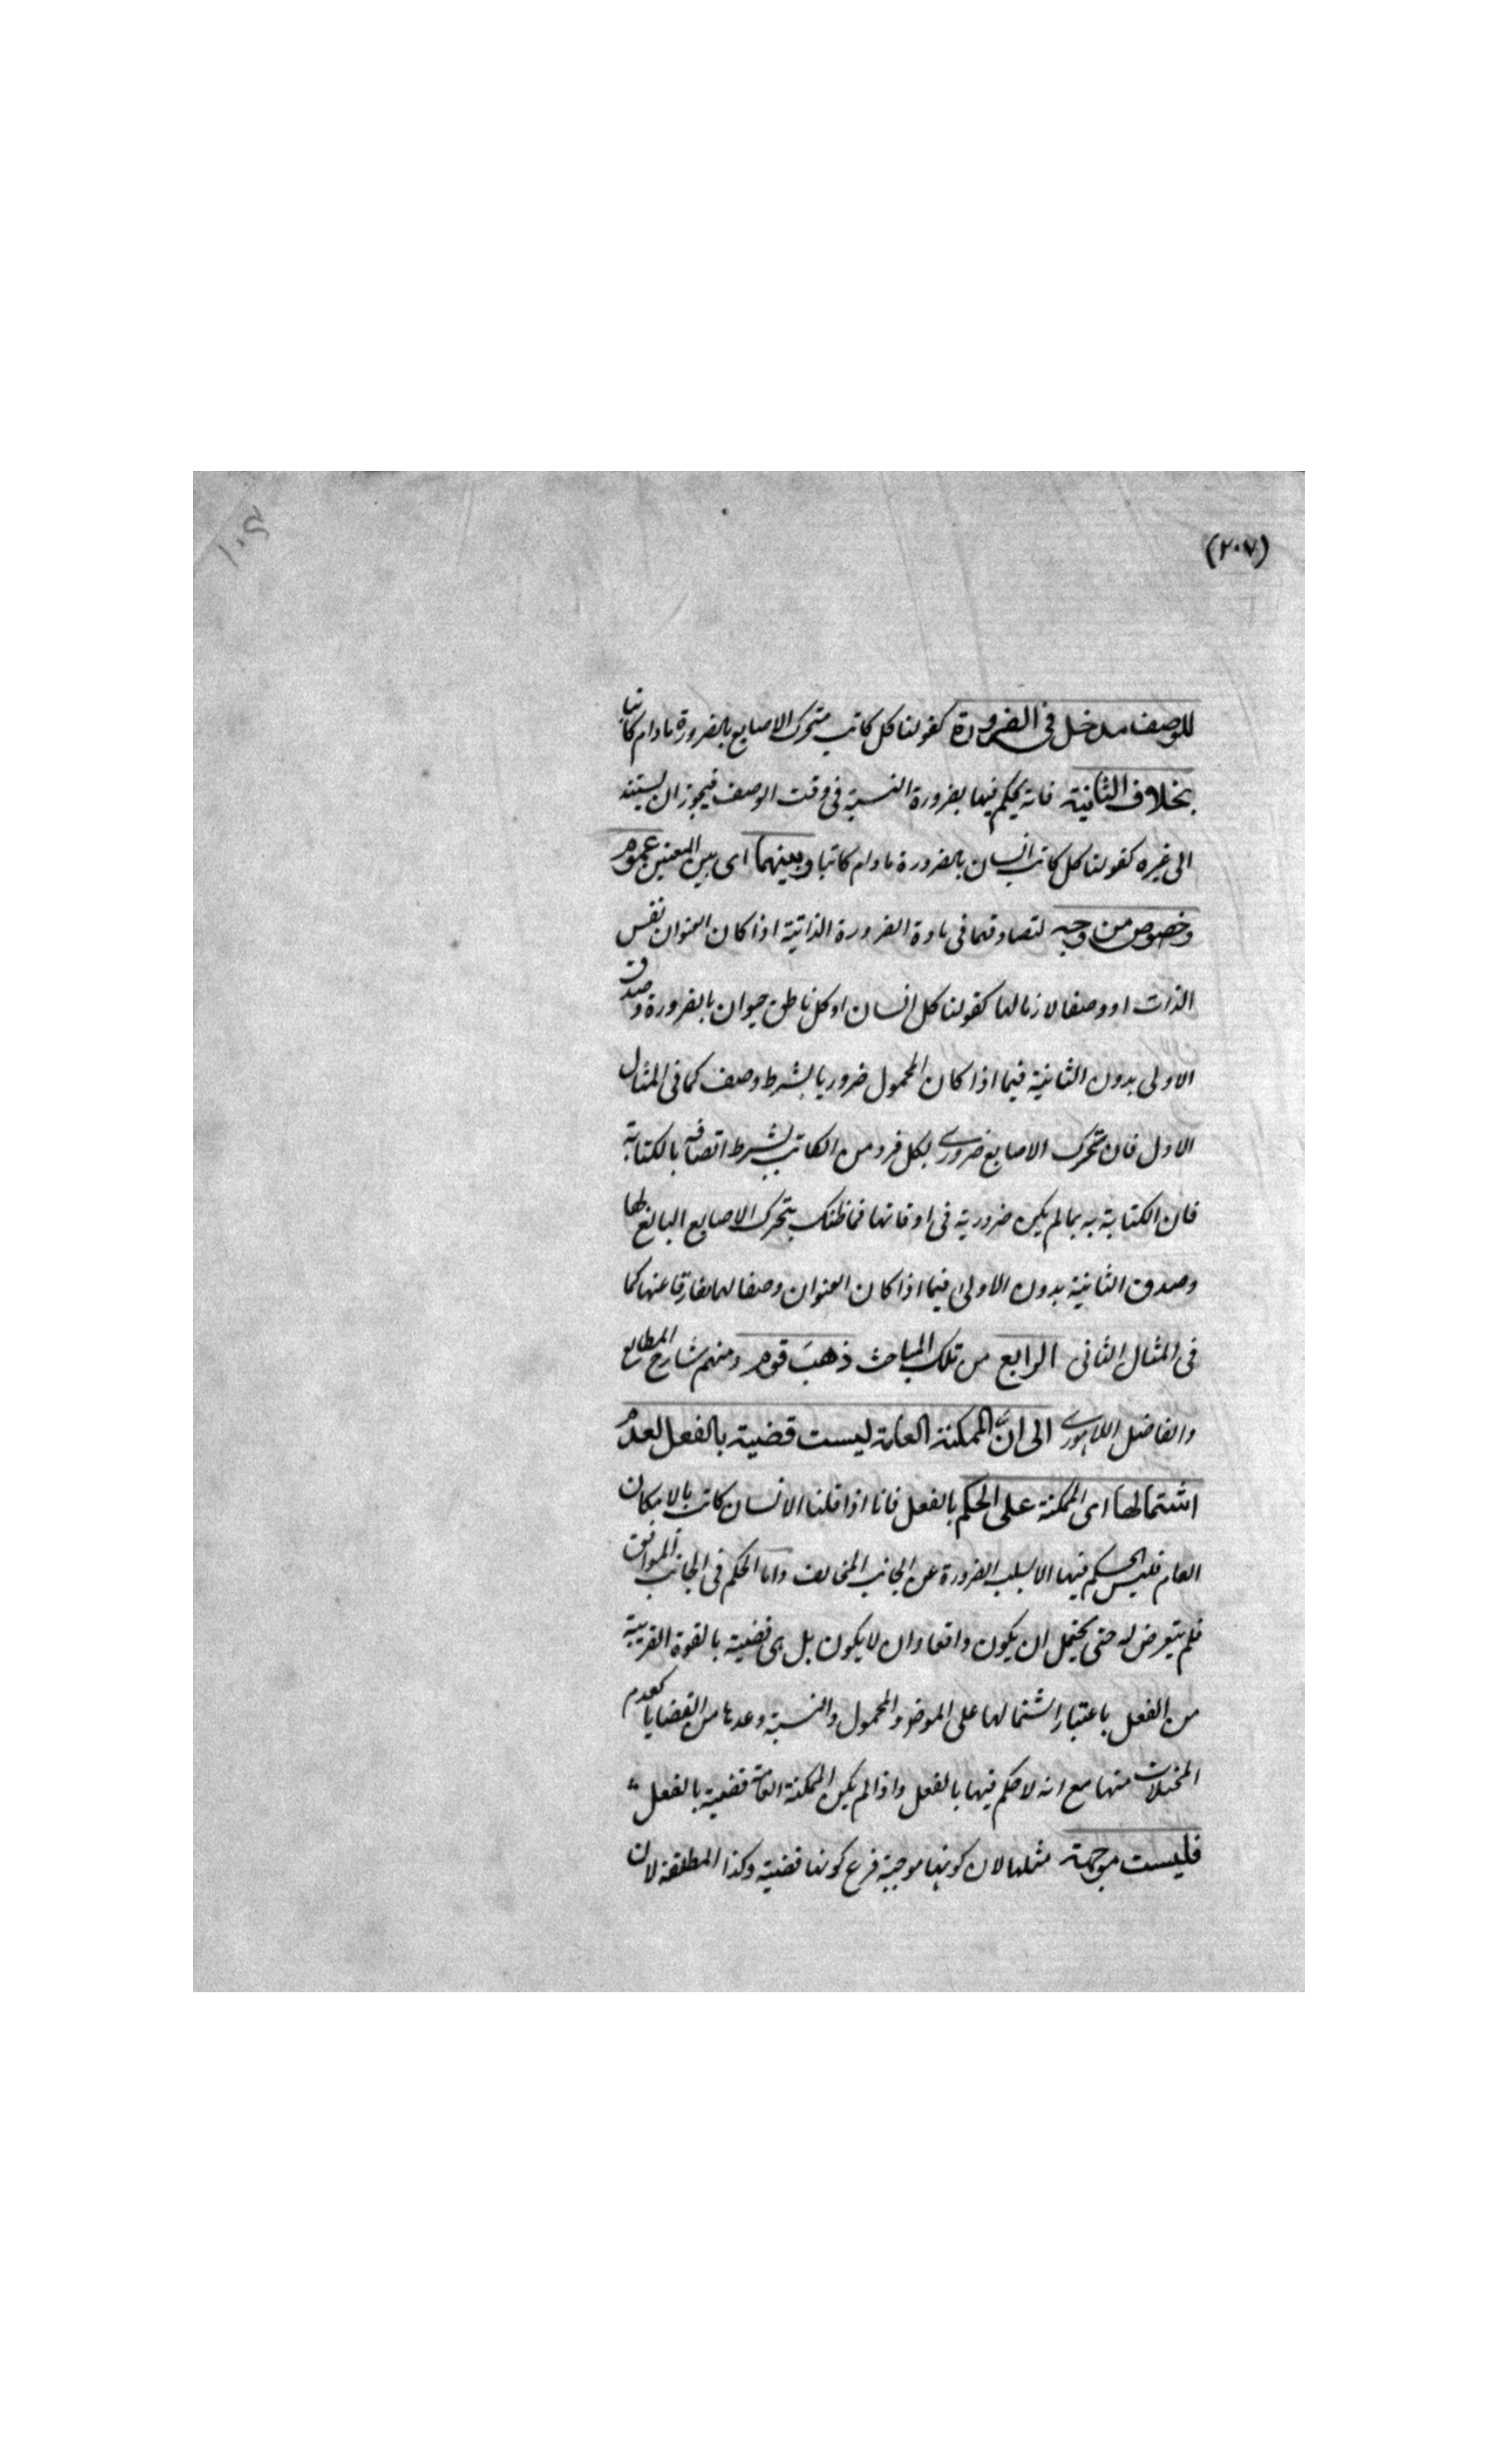 (٢٠٧)
١٠٤
للوصف مدخل فى الضرورة كقولنا كل كاتب متحرك الاصابع بالضرورة مادام كاتبا
بخلاف الثانية فانه يحكم فيها بضرورة النسبة فى وقت الوصف فيجوز ان يستند
الى غيره كقولنا كل كاتب انسان بالضرورة مادام كاتبا وبينهما اى بين المعنيين عموم
وخصوص من وجه لتصادقهما فى مادة الضرورة الذاتية اذا كان العنوان نفس
الذات او وصفا لازما لها كقولنا كل انسان او كل ناطق حيوان بالضرورة وصدق
الاولى بدون الثانية فيما اذا كان المحمول ضروريا بشرط وصف كما فى المثال
الاول فان تحرك الاصابع ضرورى لكل فرد من الكاتب بشرط اتصافه بالكتابة
فان الكتابة مما لم يكن ضرورية فى اوقاتها فما ظنك بتحرك الاصابع التابع لها
وصدق الثانية بدون الاولى فيما اذا كان العنوان وصفا لها مفارقا عنها كما
فى المثال الثانى الرابع من تلك المباحث ذهب قوم ومنهم شارح المطالع
والفاضل اللاهورى الى انّ الممكنة العامة ليست قضية بالفعل لعدم
اشتمالها اى الممكنة على الحكم بالفعل فانا اذا قلنا الانسان كاتب بالامكان
العام فليس الحكم فيها الا بسلب الضرورة عن الجانب المخالف واما الحكم فى الجانب الموافق
فلم يتعرض له حتى يحتمل ان يكون واقعا وان لا يكون بل هى قضية بالقوة القريبة
من الفعل باعتبار اشتمالها على الموضوع والمحمول والنسبة وعدها من القضايا كعدم
المخيلات منها مع انه لا حكم فيها بالفعل واذا لم يكن الممكنة العامة قضية بالفعل
فليست موجهة مثلها لان كونها موجهة فرع كونها قضية وكذا المطلقة لان